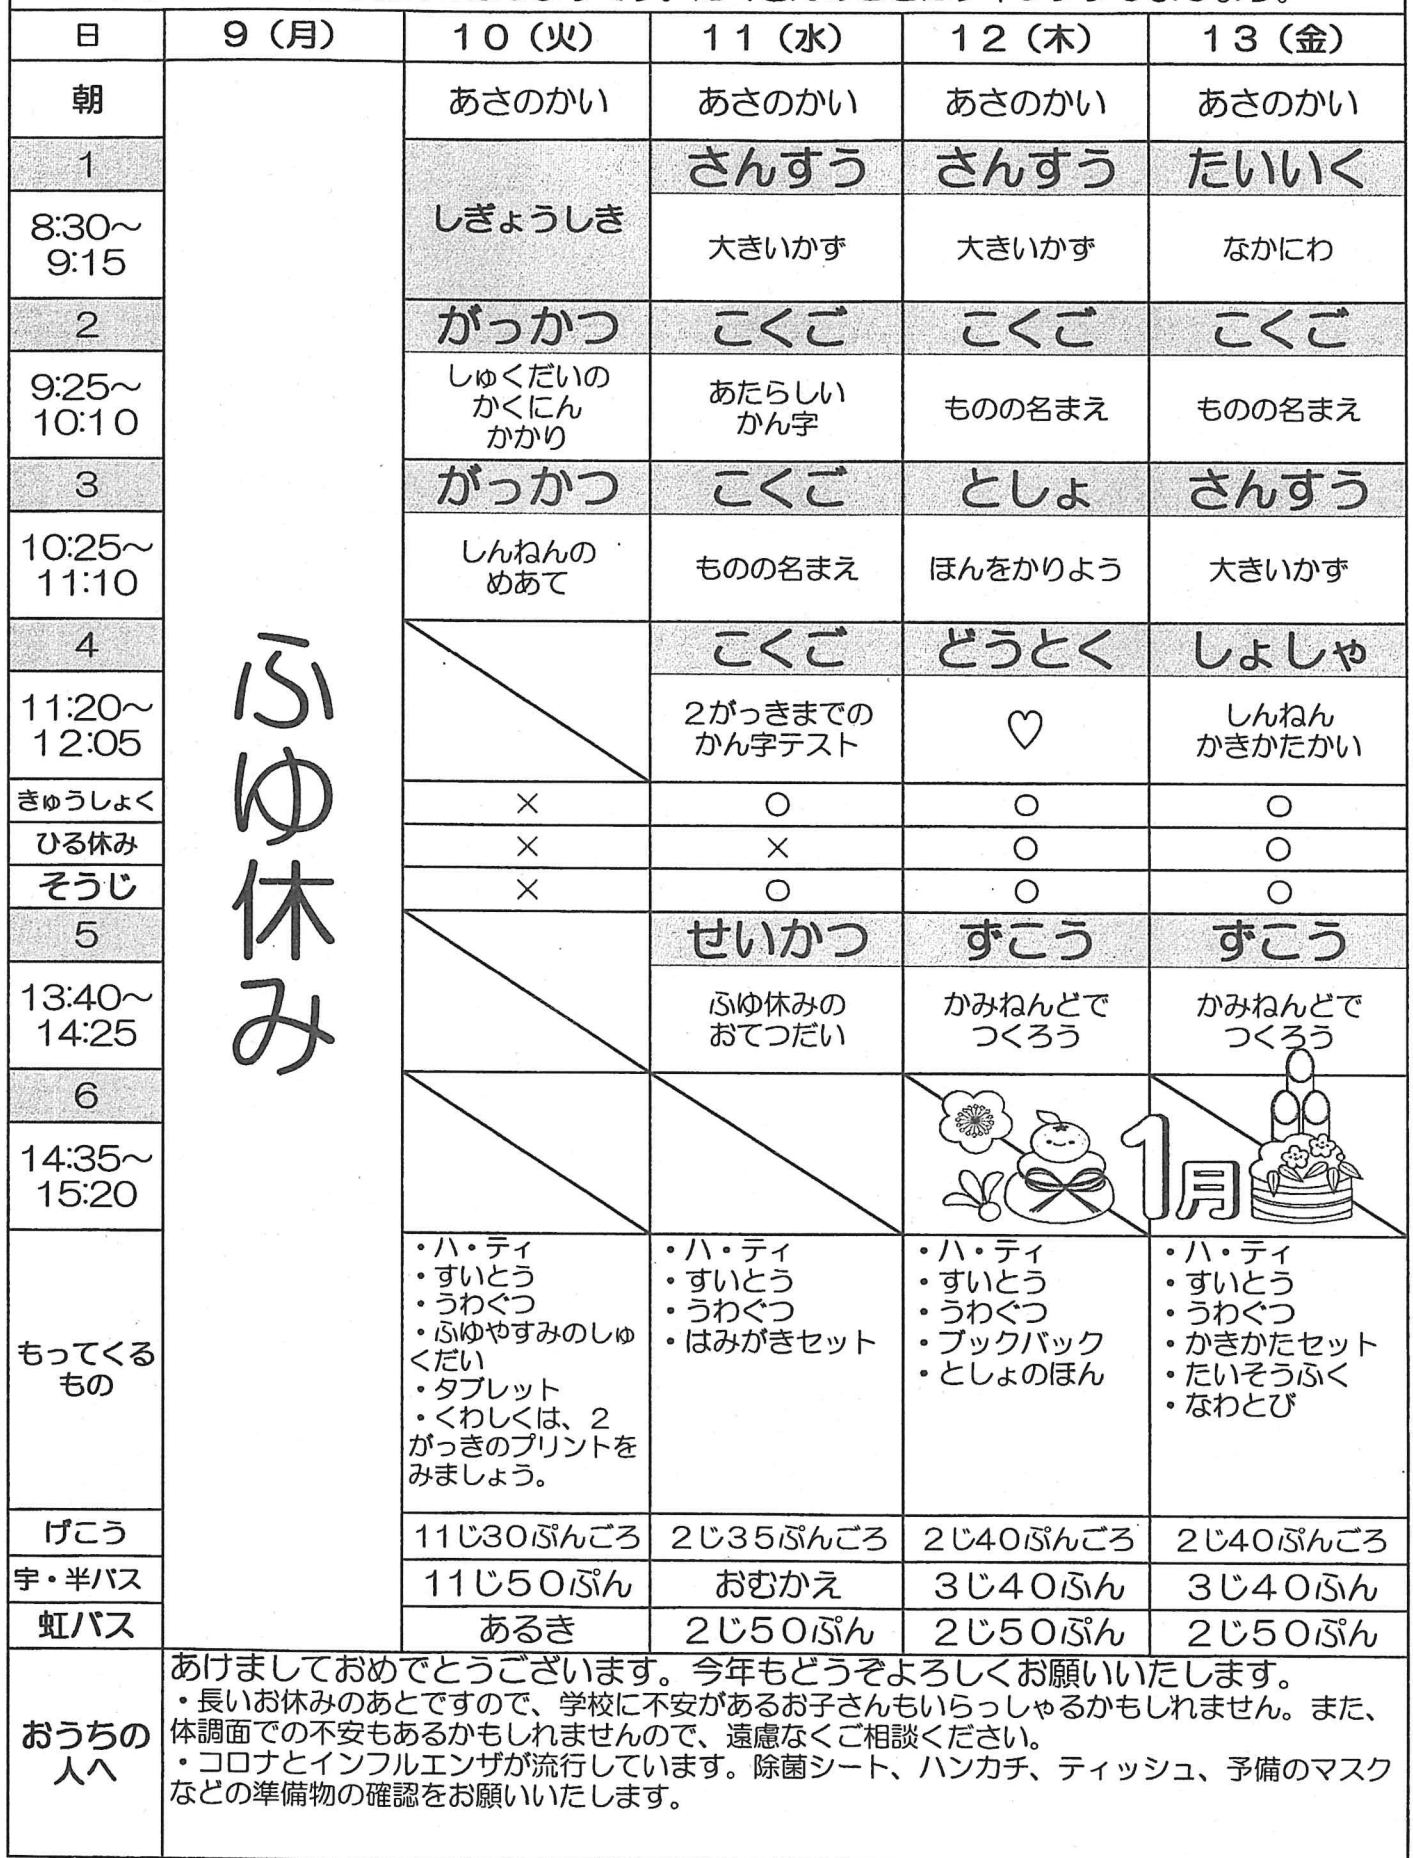 日 9（月） 10（火） 11（水） 12（木） 13（金）
朝 あさのかい あさのかい あさのかい あさのかい
1 しぎょうしき さんすう さんすう たいいく
8:30～
9:15
大きいかず 大きいかず なかにわ
2 がっかつ こくご こくご こくご
9:25～
10:10
しゅくだいの
かくにん
かかり
あたらしい
かん字
ものの名まえ ものの名まえ
3 がっかつ こくご としょ さんすう
10:25～
11:10
しんねんの
めあて
ものの名まえ ほんをかりよう 大きいかず
ふゆ休み
4 こくご どうとく しょしゃ
11:20～
12:05
2がっきまでの
かん字テスト
♡
しんねん
かきかたかい
きゅうしょく × ○ ○ ○
ひる休み × × ○ ○
そうじ × ○ ○ ○
5 せいかつ ずこう ずこう
13:40～
14:25
ふゆ休みの
おてつだい
かみねんどで
つくろう
かみねんどで
つくろう
6
14:35～
15:20
1月
もってくる
もの
・ハ・ティ
・すいとう
・うわぐつ
・ふゆやすみのしゅ
くだい
・タブレット
・くわしくは、2
がっきのプリントを
みましょう。
・ハ・ティ
・すいとう
・うわぐつ
・はみがきセット
・ハ・ティ
・すいとう
・うわぐつ
・ブックバック
・としょのほん
・ハ・ティ
・すいとう
・うわぐつ
・かきかたセット
・たいそうふく
・なわとび
げこう 11じ30ぷんごろ 2じ35ぷんごろ 2じ40ぷんごろ 2じ40ぷんごろ
宇・半バス 11じ50ぷん おむかえ 3じ40ふん 3じ40ふん
虹バス あるき 2じ50ぷん 2じ50ぷん 2じ50ぷん
おうちの
人へ
あけましておめでとうございます。今年もどうぞよろしくお願いいたします。
・長いお休みのあとですので、学校に不安があるお子さんもいらっしゃるかもしれません。また、
体調面での不安もあるかもしれませんので、遠慮なくご相談ください。
・コロナとインフルエンザが流行しています。除菌シート、ハンカチ、ティッシュ、予備のマスク
などの準備物の確認をお願いいたします。